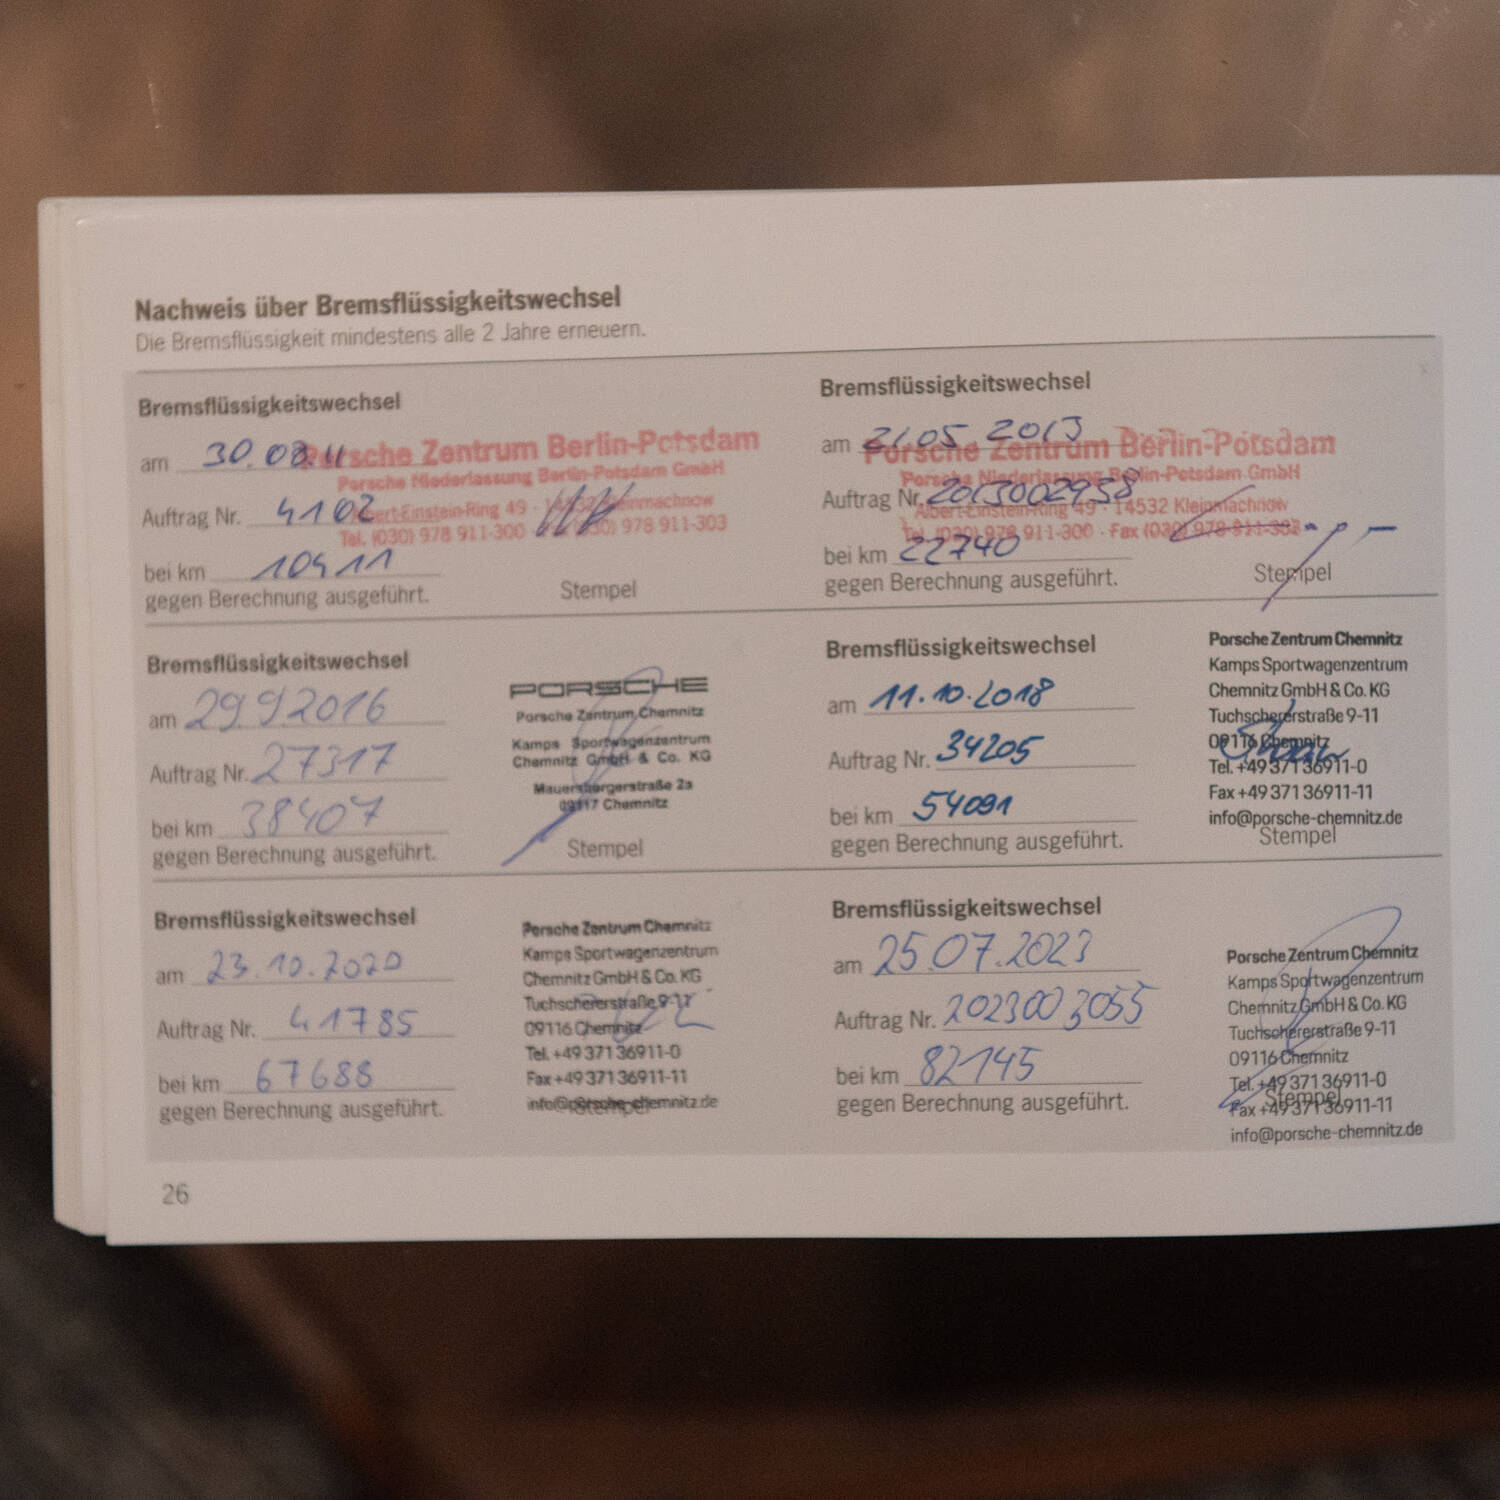 Nachweis über Bremsflüssigkeitswechsel
Die Bremsflüssigkeit mindestens alle 2 Jahre erneuern.
Bremsflüssigkeitswechsel
am 30.08.11
Auftrag Nr. 4102
bei km 10411
gegen Berechnung ausgeführt.
Porsche Zentrum Berlin-Potsdam
Porsche Niederlassung Berlin-Potsdam GmbH
Albert-Einstein-Ring 49 · 14532 Kleinmachnow
Tel. (030) 978 911-300 (030) 978 911-303
Stempel
Bremsflüssigkeitswechsel
am 21.05.2013
Auftrag Nr. 2013002958
bei km 22740
gegen Berechnung ausgeführt.
Porsche Zentrum Berlin-Potsdam
Porsche Niederlassung Berlin-Potsdam GmbH
Albert-Einstein-Ring 49 · 14532 Kleinmachnow
Tel. (030) 978 911-300 · Fax (030) 978-911-303
Stempel
Bremsflüssigkeitswechsel
am 29.9.2016
Auftrag Nr. 27317
bei km 38407
gegen Berechnung ausgeführt.
PORSCHE
Porsche Zentrum Chemnitz
Kamps Sportwagenzentrum
Chemnitz GmbH & Co. KG
Mauersbergerstraße 2a
09117 Chemnitz
Stempel
Bremsflüssigkeitswechsel
am 11.10.2018
Auftrag Nr. 34205
bei km 54091
gegen Berechnung ausgeführt.
Porsche Zentrum Chemnitz
Kamps Sportwagenzentrum
Chemnitz GmbH & Co. KG
Tuchschererstraße 9-11
09116 Chemnitz
Tel. +49 371 36911-0
Fax +49 371 36911-11
info@porsche-chemnitz.de
Stempel
Bremsflüssigkeitswechsel
am 23.10.2020
Auftrag Nr. 41785
bei km 67688
gegen Berechnung ausgeführt.
Porsche Zentrum Chemnitz
Kamps Sportwagenzentrum
Chemnitz GmbH & Co. KG
Tuchschererstraße 9-11
09116 Chemnitz
Tel. +49 371 36911-0
Fax +49 371 36911-11
info@porsche-chemnitz.de
Stempel
Bremsflüssigkeitswechsel
am 25.07.2023
Auftrag Nr. 2023003055
bei km 82145
gegen Berechnung ausgeführt.
Porsche Zentrum Chemnitz
Kamps Sportwagenzentrum
Chemnitz GmbH & Co. KG
Tuchschererstraße 9-11
09116 Chemnitz
Tel. +49 371 36911-0
Stempel
Fax +49 371 36911-11
info@porsche-chemnitz.de
26